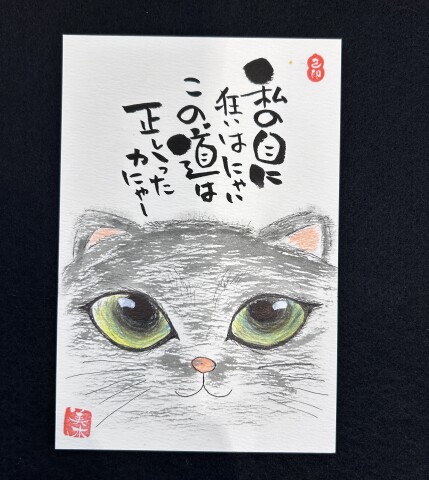 私の目に
狂いはにゃい
この道は
正しかった
かにゃー
美木